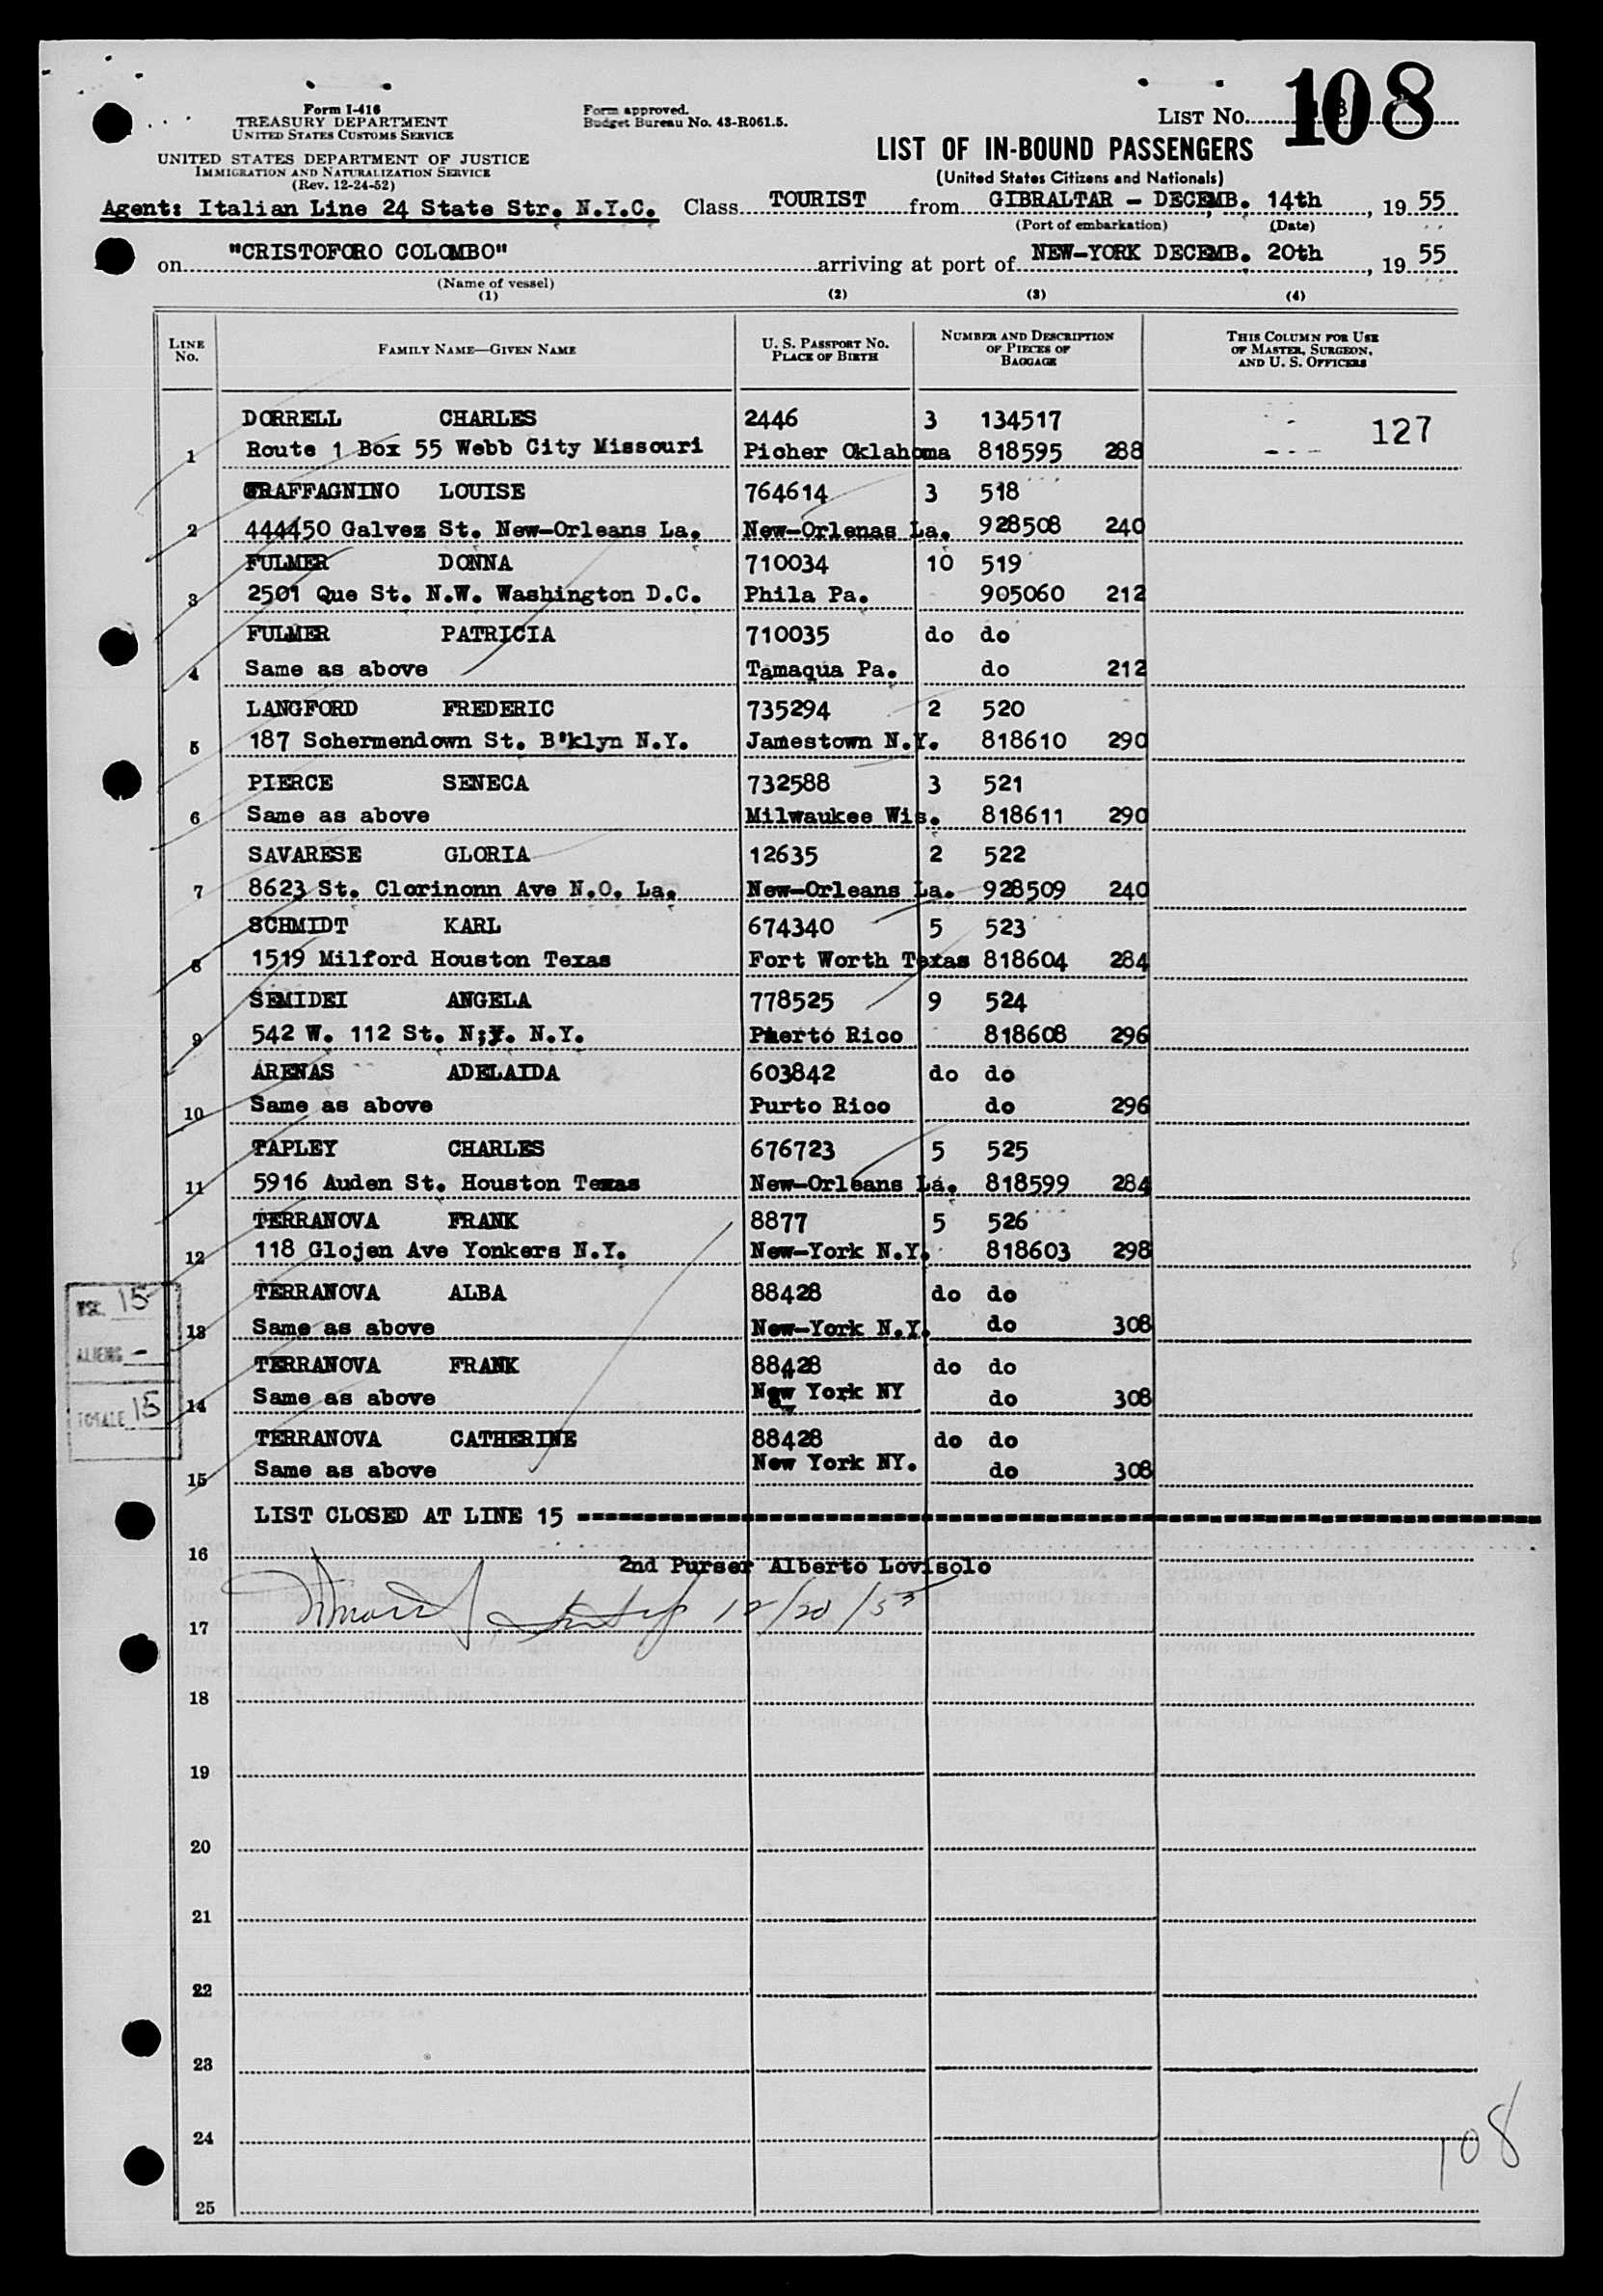 Form I-416
TREASURY DEPARTMENT
UNITED STATES CUSTOMS SERVICE
UNITED STATES DEPARTMENT OF JUSTICE
IMMIGRATION AND NATURALIZATION SERVICE
(Rev. 12-24-52)
Form approved.
Budget Bureau No. 43-R061.5.
LIST NO. 108
LIST OF IN-BOUND PASSENGERS
(United States Citizens and Nationals)
Agent: Italian Line 24 State Str. N.Y.C. Class TOURIST from GIBRALTAR - DECEMB. 14th, 19 55
(Port of embarkation) (Date)
on "CRISTOFORO COLOMBO" arriving at port of NEW-YORK DECEMB. 20th, 19 55
(Name of vessel)
(1) (2) (3) (4)
LINE NO. FAMILY NAME—GIVEN NAME U. S. PASSPORT NO. PLACE OF BIRTH NUMBER AND DESCRIPTION OF PIECES OF BAGGAGE THIS COLUMN FOR USE OF MASTER, SURGEON, AND U. S. OFFICERS
DORRELL CHARLES 2446 3 134517 127
1 Route 1 Box 55 Webb City Missouri Picher Oklahoma 818595 288
GRAFFAGNINO LOUISE 764614 3 518
2 444450 Galvez St. New-Orleans La. New-Orlenas La. 928508 240
FULMER DONNA 710034 10 519
3 2501 Que St. N.W. Washington D.C. Phila Pa. 905060 212
FULMER PATRICIA 710035 do do
4 Same as above Tamaqua Pa. do 212
LANGFORD FREDERIC 735294 2 520
5 187 Schermendown St. B'klyn N.Y. Jamestown N.Y. 818610 290
PIERCE SENECA 732588 3 521
6 Same as above Milwaukee Wis. 818611 290
SAVARESE GLORIA 12635 2 522
7 8623 St. Clorinonn Ave N.O. La. New-Orleans La. 928509 240
SCHMIDT KARL 674340 5 523
8 1519 Milford Houston Texas Fort Worth Texas 818604 284
SEMIDEI ANGELA 778525 9 524
9 542 W. 112 St. N;Y. N.Y. Puerto Rico 818608 296
ARENAS ADELAIDA 603842 do do
10 Same as above Purto Rico do 296
TAPLEY CHARLES 676723 5 525
11 5916 Auden St. Houston Texas New-Orleans La. 818599 284
TERRANOVA FRANK 8877 5 526
12 118 Glojen Ave Yonkers N.Y. New-York N.Y. 818603 298
TERRANOVA ALBA 88428 do do
13 Same as above New-York N.Y. do 308
TERRANOVA FRANK 88428 do do
14 Same as above New York NY do 308
TERRANOVA CATHERINE 88428 do do
15 Same as above New York NY. do 308
15
ALIENS -
TOTALE 15
LIST CLOSED AT LINE 15
16 2nd Purser Alberto Lovisolo
17 12/20/55
18
19
20
21
22
23
24
108
25